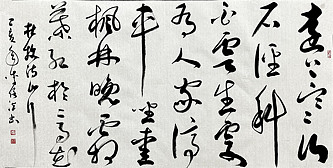 遠上寒山
石徑斜
白雲生處
有人家停
車坐愛
楓林晚霜
葉紅於二月花
杜牧詩山行